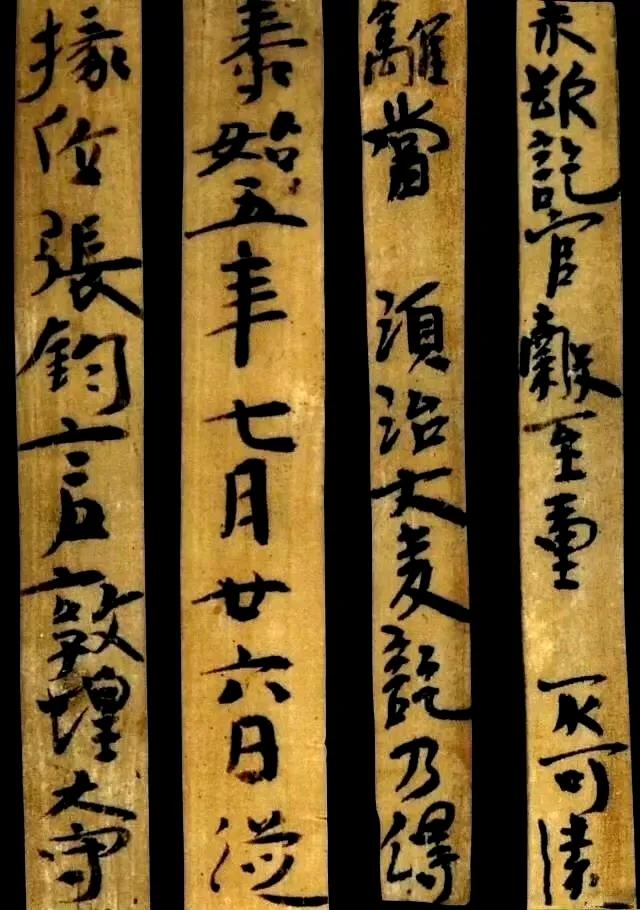 未欲訖官穀至重不可遠
離當須治大麥訖乃得
泰始五年七月廿六日從
掾位張鈞言敦煌大守